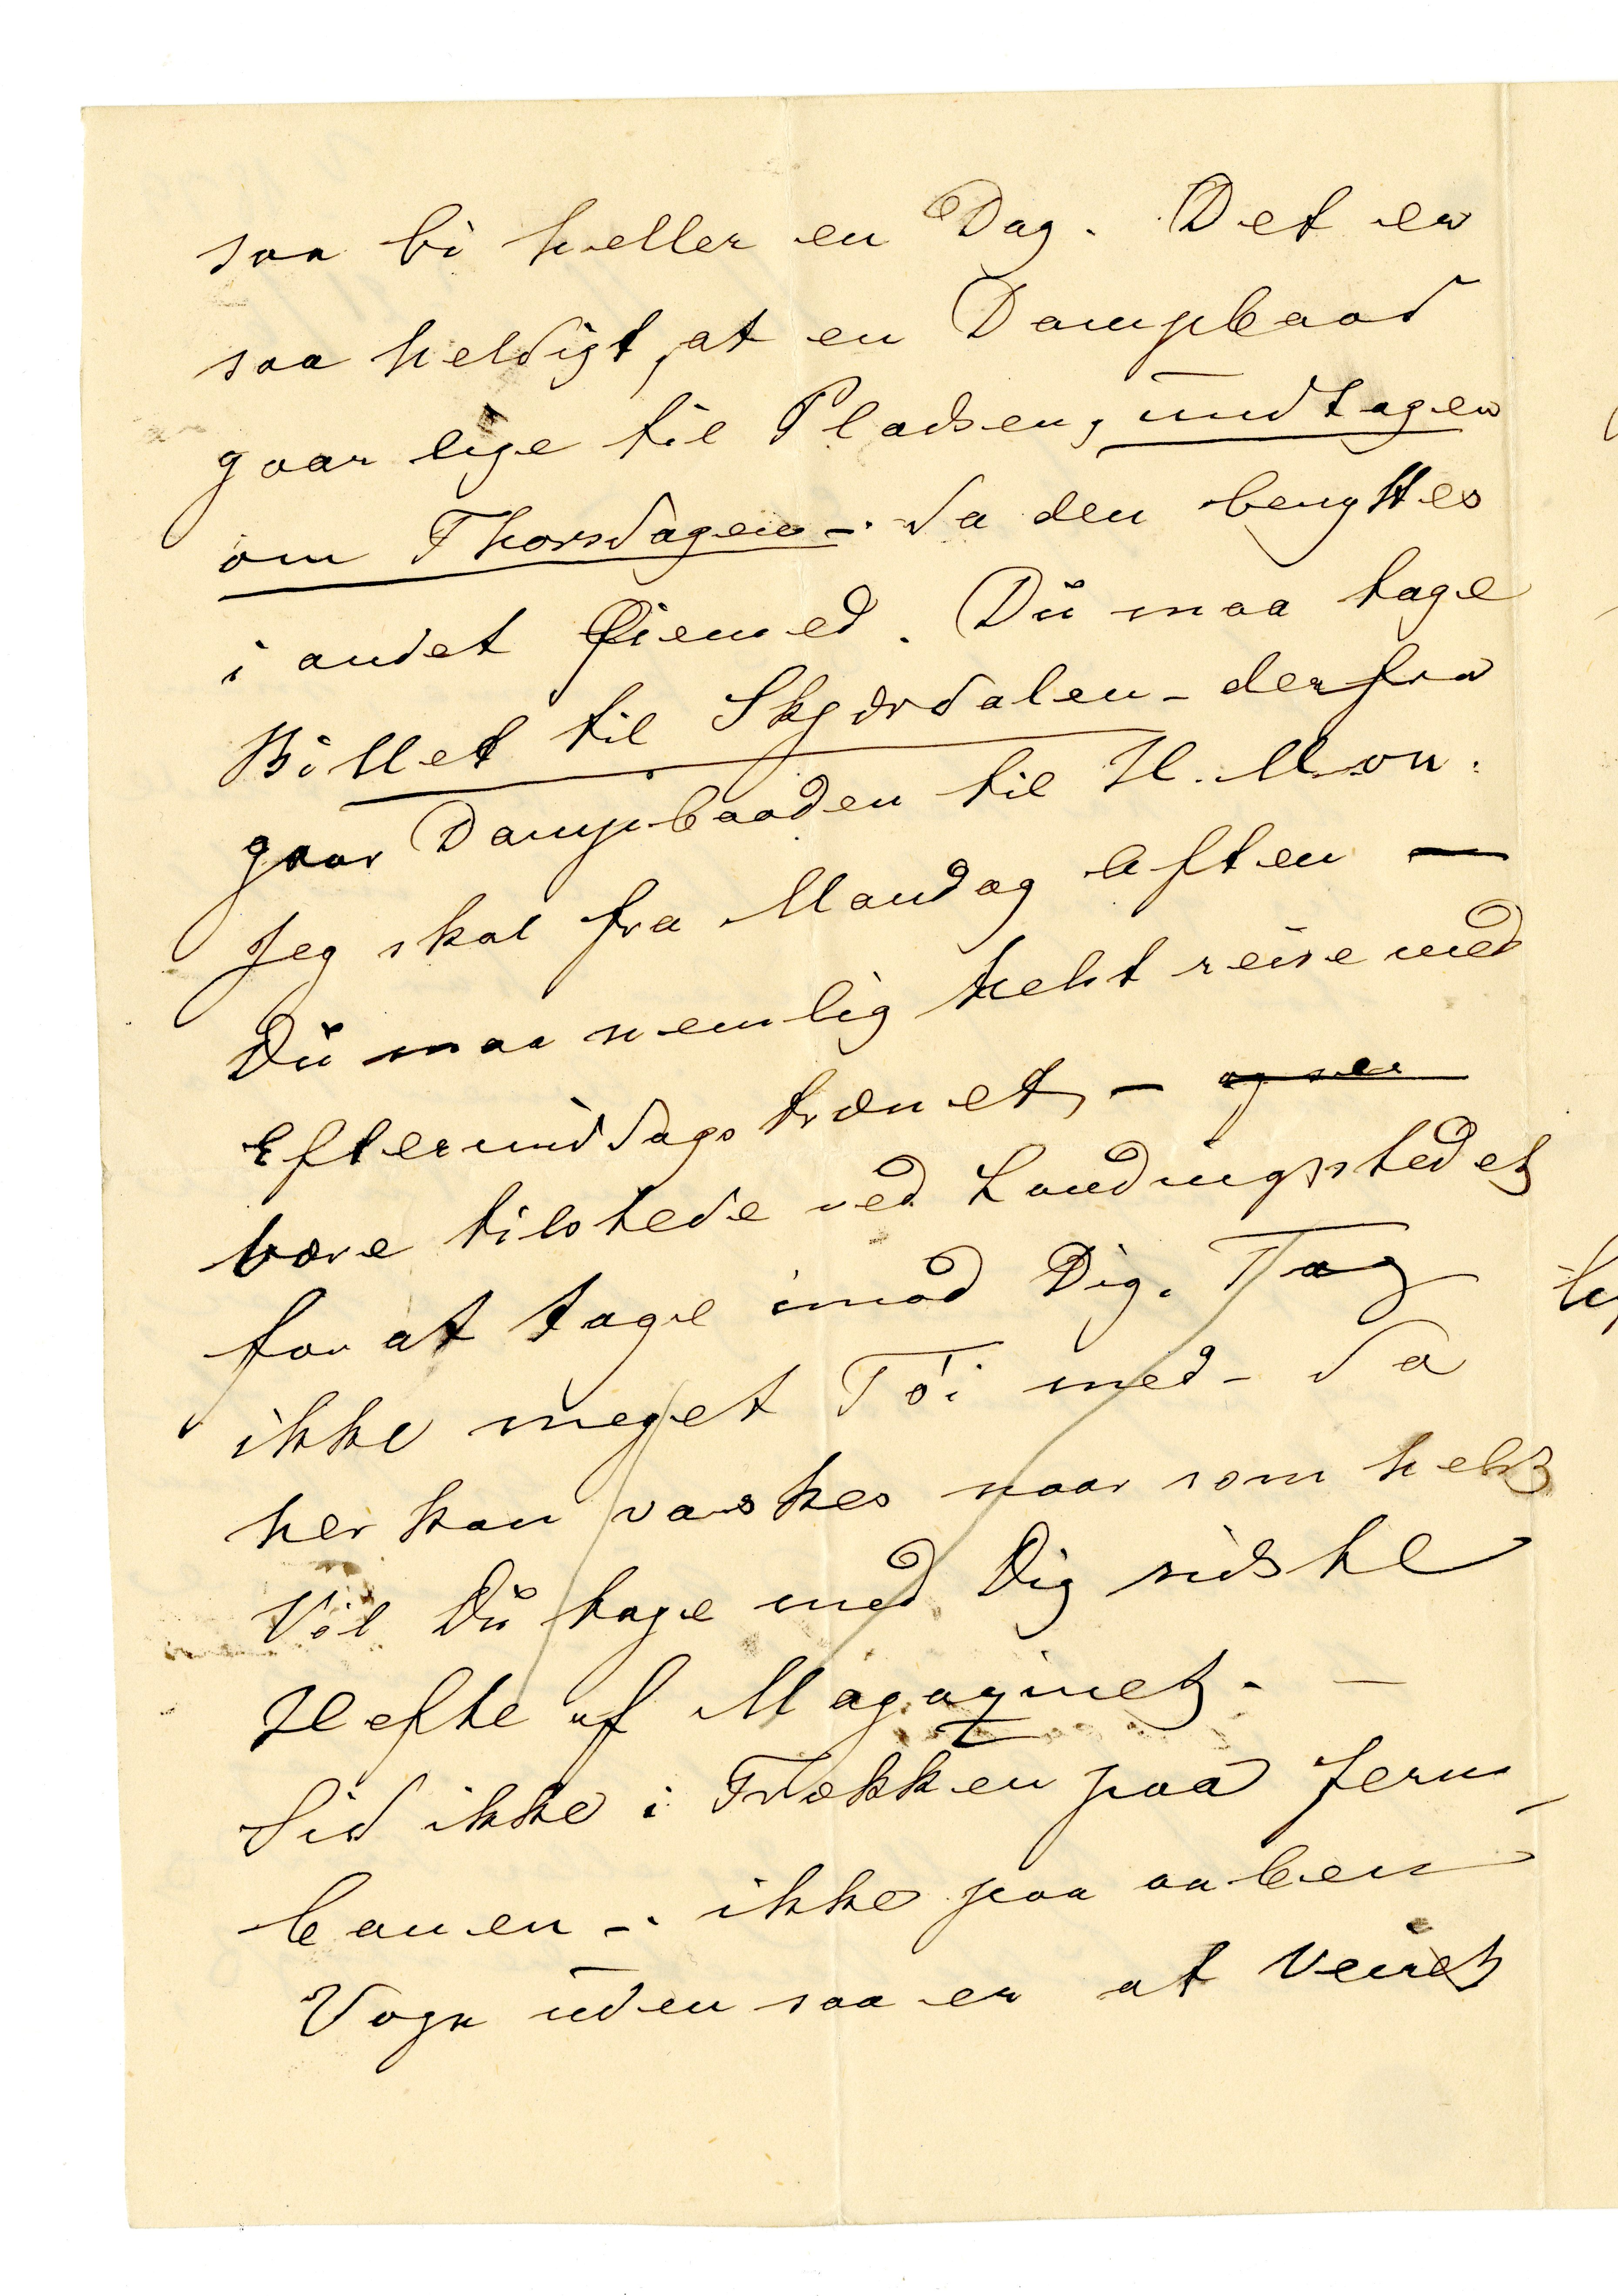 saa bi heller en Dag. Det er
saa heldigt, at en Dampbaad
gaar lige til Pladsen, undtagen
om Thorsdagen - da den benyttes
i andet Øiemed. Du maa tage
Billet til Skjærdalen - derfra
gaar Dampbaaden til H. Mon.
Jeg skal fra Mandag Aften —
Du maa nemlig helst reise med
Eftermiddagstrænet, -
være tilstede ved Landingsstedet
for at tage imod Dig. Tag
ikke meget Tøi med - da
her kan vaskes naar som helst
Vil Du tage med Dig sidste
Hefte af Magazinet. -
Sid ikke i Trækken paa Jern-
banen - ikke paa aaben
Vogn uden saa er at Veiret